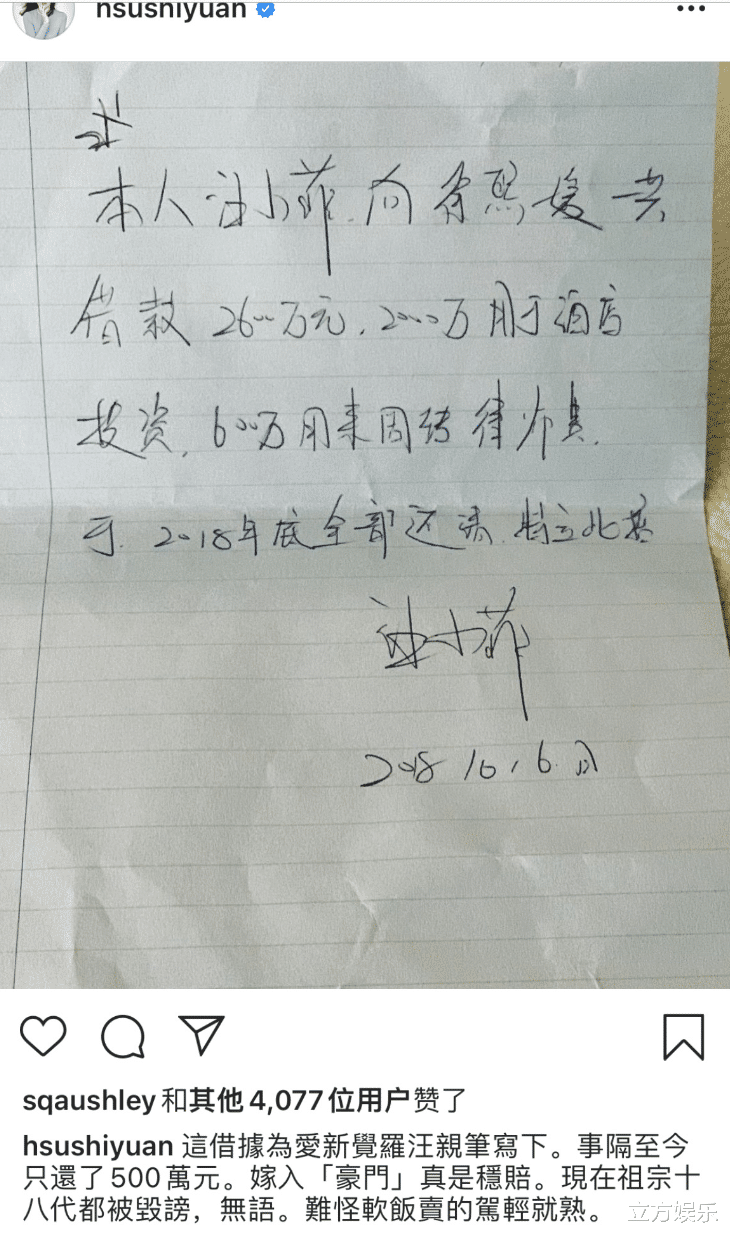 hsushiyuan
本人汪小菲.向徐熙媛共
借款2600万元.2000万用于酒店
投资.600万用来周转律师费.
于.2018年底全部还清.特立此
汪小菲
2018 10, 6.日
sqaushley和其他 4,077 位用户赞了
hsushiyuan 這借據為愛新覺羅汪親筆寫下。事隔至今
只還了500萬元。嫁入「豪門」真是穩賠。現在祖宗十
八代都被毀謗，無語。難怪軟飯賣的駕輕就熟。
立方娱乐